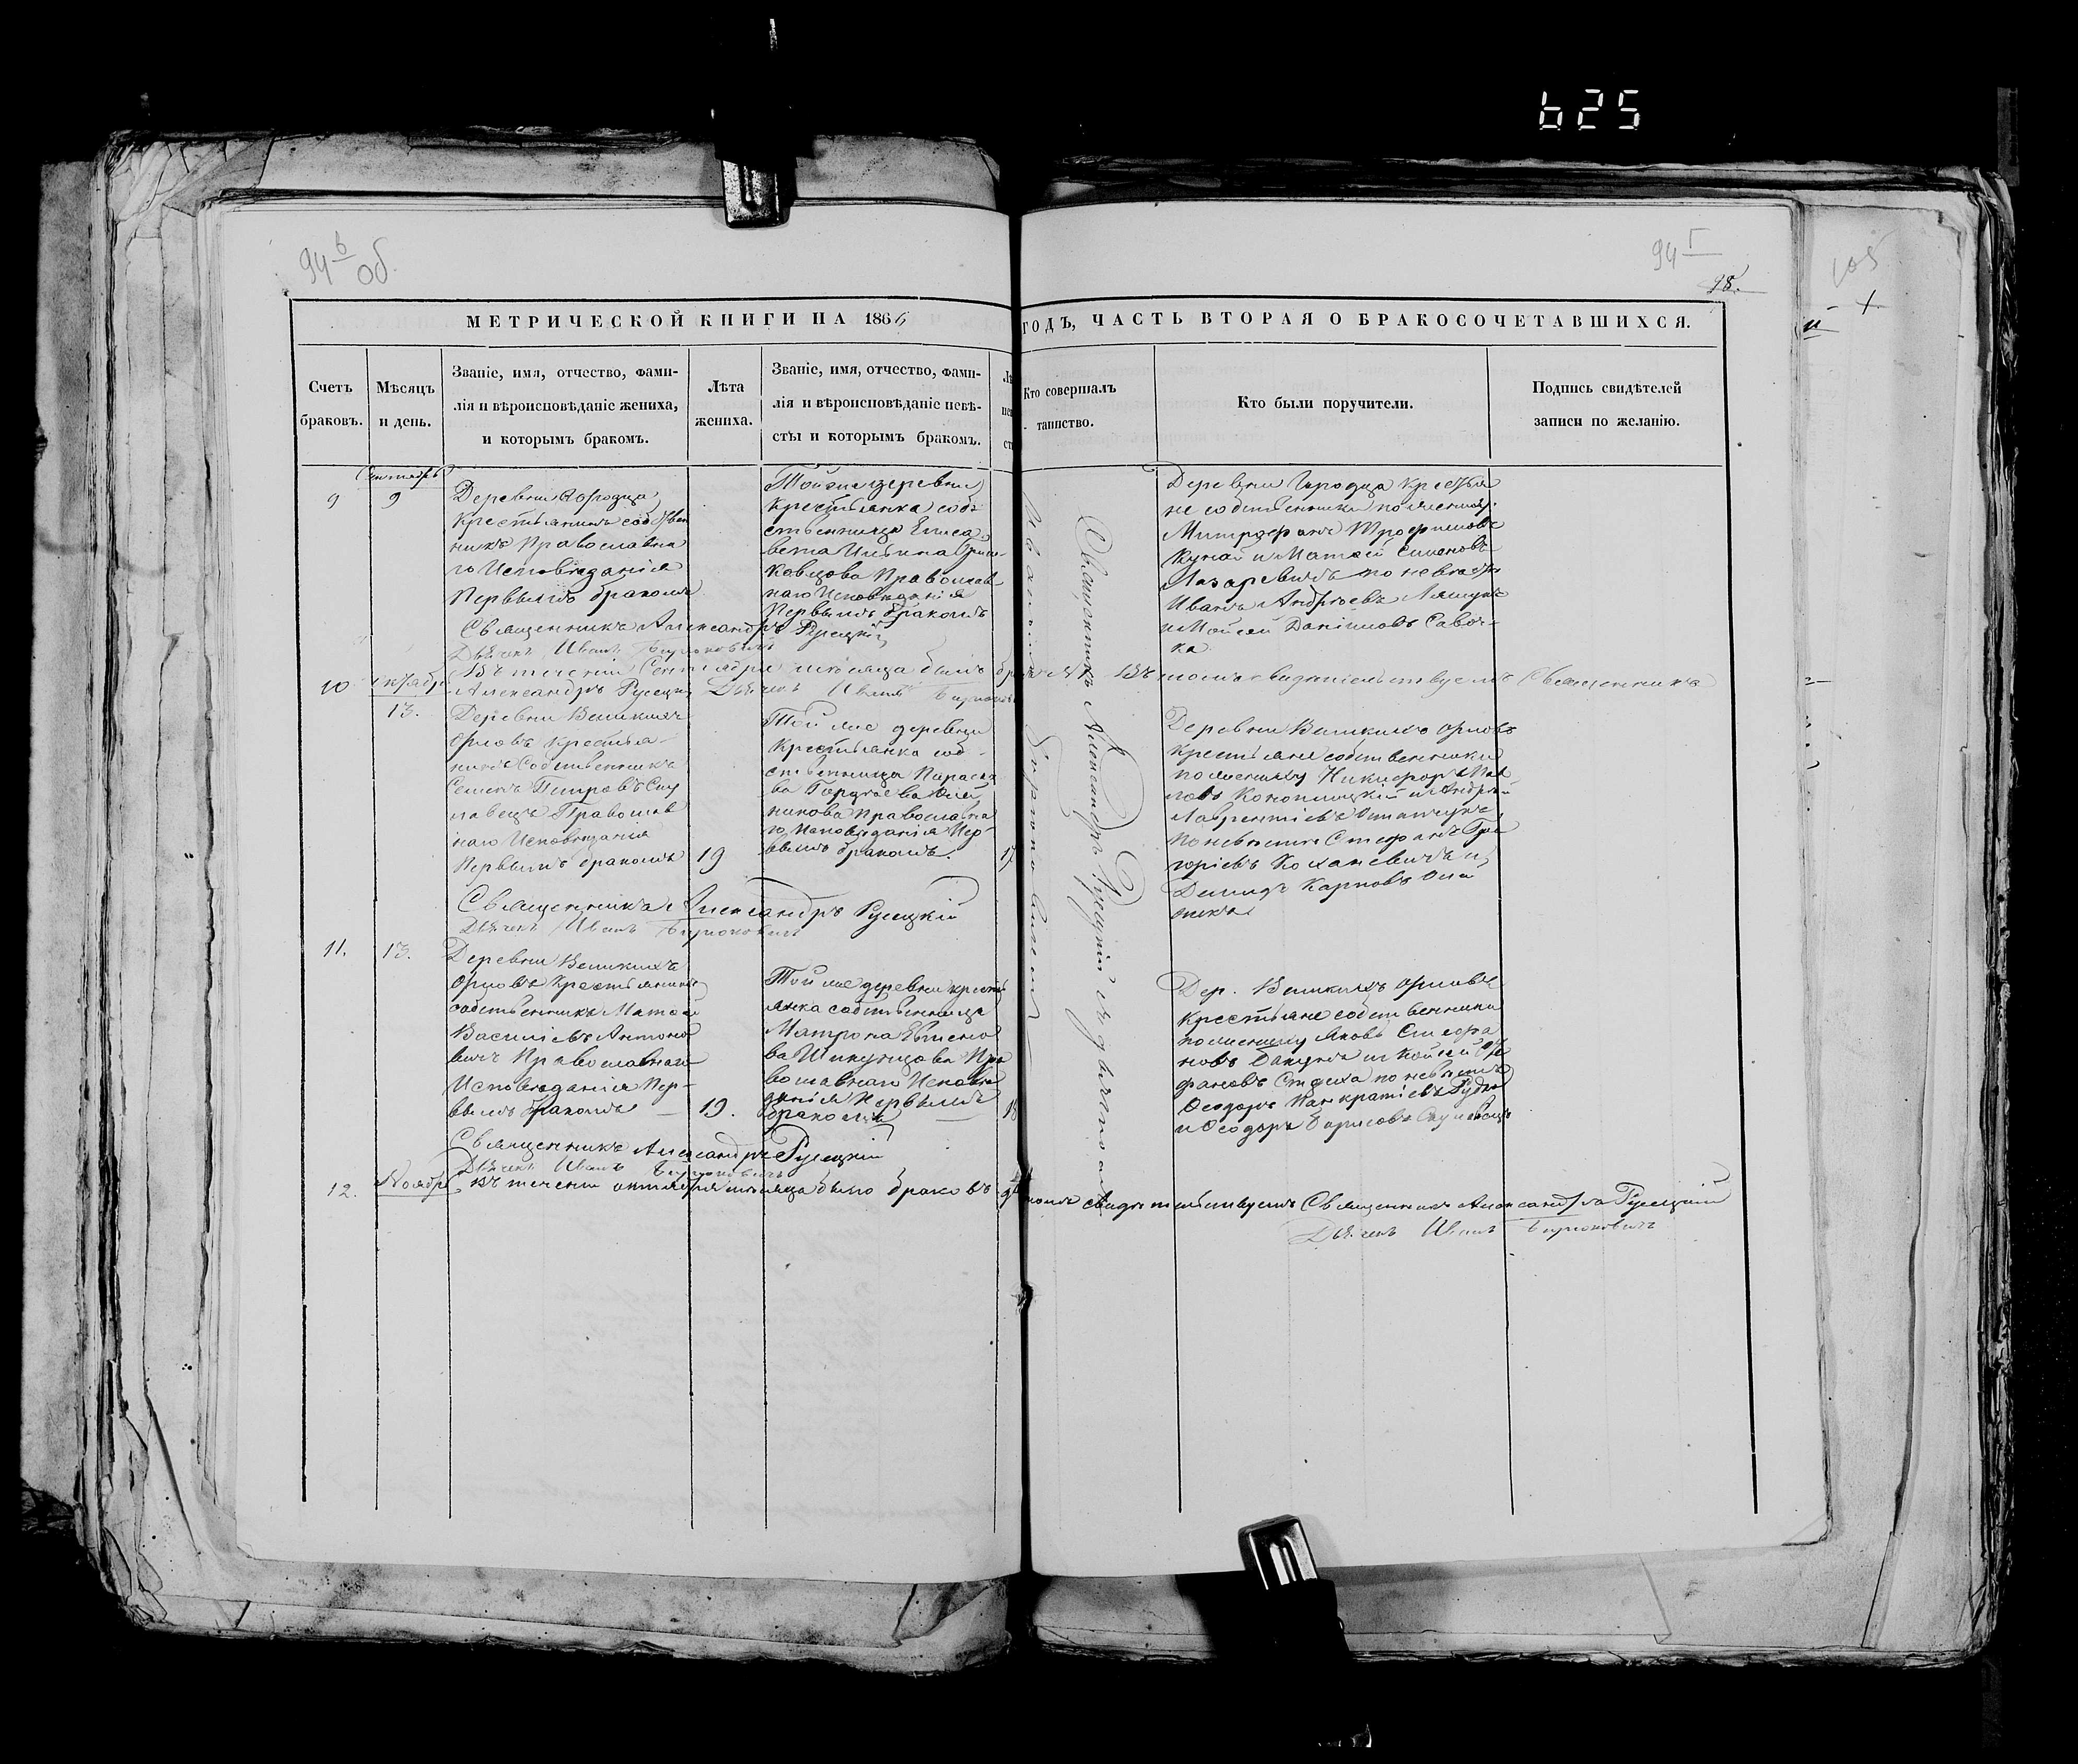 625
94 в об.
94 г
98.
105
МЕТРИЧЕСКОЙ КНИГИ НА 1866
ГОДЪ, ЧАСТЬ ВТОРАЯ О БРАКОСОЧЕТАВШИХСЯ.
Счетъ браковъ.
Мѣсяцъ и день.
Званіе, имя, отчество, фами-
лія и вѣроисповѣданіе жениха,
и которымъ бракомъ.
Лѣта жениха.
Званіе, имя, отчество, фами-
лія и вѣроисповѣданіе невѣ-
сты и которымъ бракомъ.
Кто совершалъ
таинство.
Кто были поручители.
Подпись свидѣтелей
записи по желанію.
Сентябрь
9
9
Деревни Городца
крестьянинъ собствен
никъ Православна
го Исповѣданія
Первымъ бракомъ
Тойже деревни
крестьянка соб
ственница Елиса
вета Ильина
ковцова Православ
наго Исповѣданія
Первымъ бракомъ
Деревни Городца крестья
не собственники по жениху
Митрофанъ Трофимовъ
Кунай и Матѳей Симоновъ
Лазаревичъ по невѣстѣ
Иванъ Андреевъ Ляшукъ
и Мойсей Даніиловъ Савоч-
ка.
Священникъ Александръ Русецкій
Дьячекъ Иванъ Бирюковичъ
Въ теченіи Сентября мѣсяца былъ бракъ 1. Въ томъ свидѣтельствуемъ Священникъ
Александръ Русецкій Дьячекъ Иванъ Бирюковичъ
10
Октябрь
13.
Деревни Великихъ
Орловъ крестья-
нинъ Собственникъ
Семенъ Петровъ Ску
ловецъ Православ
наго Исповѣданія
Первымъ бракомъ
19
Той же деревни
Крестьянка соб-
ственница Параске
ва Гордіева Олей
никова Православна
го Исповѣданія Пер-
вымъ бракомъ.
17
Деревни Великихъ Орловъ
крестьяне собственники
по жениху Никифоръ Пав
ловъ Конопицкій и Андрей
Лаврентіевъ
По невѣстѣ Стефанъ Гри
горіевъ Коханевичъ и
Демидъ Карповъ Олей
никъ
Священникъ Александръ Русецкій
Дьячекъ Иванъ Бирюковичъ
11.
13.
Деревни Великихъ
Орловъ крестьянинъ
собственникъ Матѳей
Василіевъ Антоно
вичъ Православнаго
Исповѣданія Пер-
вымъ бракомъ
19.
Той же деревни кресть
янка собственница
Матрона Евгено
ва Шикунцова Пра
вославнаго Исповѣ
данія Первымъ
бракомъ
18
Дер. Великихъ Орловъ
крестьяне собственники
по жениху Яковъ Стефа
новъ
фановъ по невѣстѣ
Ѳеодоръ Панкратіевъ
и Ѳеодоръ Борисовъ Скуловецъ
Священникъ Александръ Русецкій
Дьячекъ Иванъ Бирюковичъ
12.
Ноябрь
Въ теченіи октября мѣсяца было браковъ 2 въ томъ свидѣтельствуемъ Священникъ Александръ Русецкій
Дьячекъ Иванъ Бирюковичъ
Священникъ Александръ Русецкій съ дьячкомъ
Иваномъ Бирюковичемъ